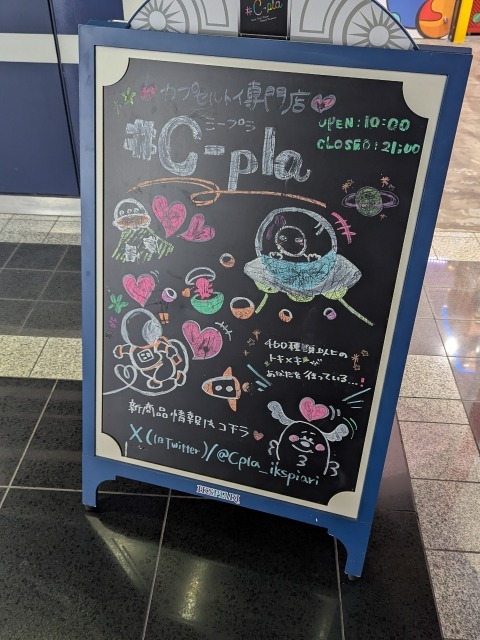 #C-pla
カプセルトイ専門店
シープラ
#C-pla
OPEN:10:00
CLOSED:21:00
400種類以上の
トキメキが
あなたを待っている...!
新商品情報はコチラ
X(旧Twitter)/@Cpla_ikspiari
IKSPIARI